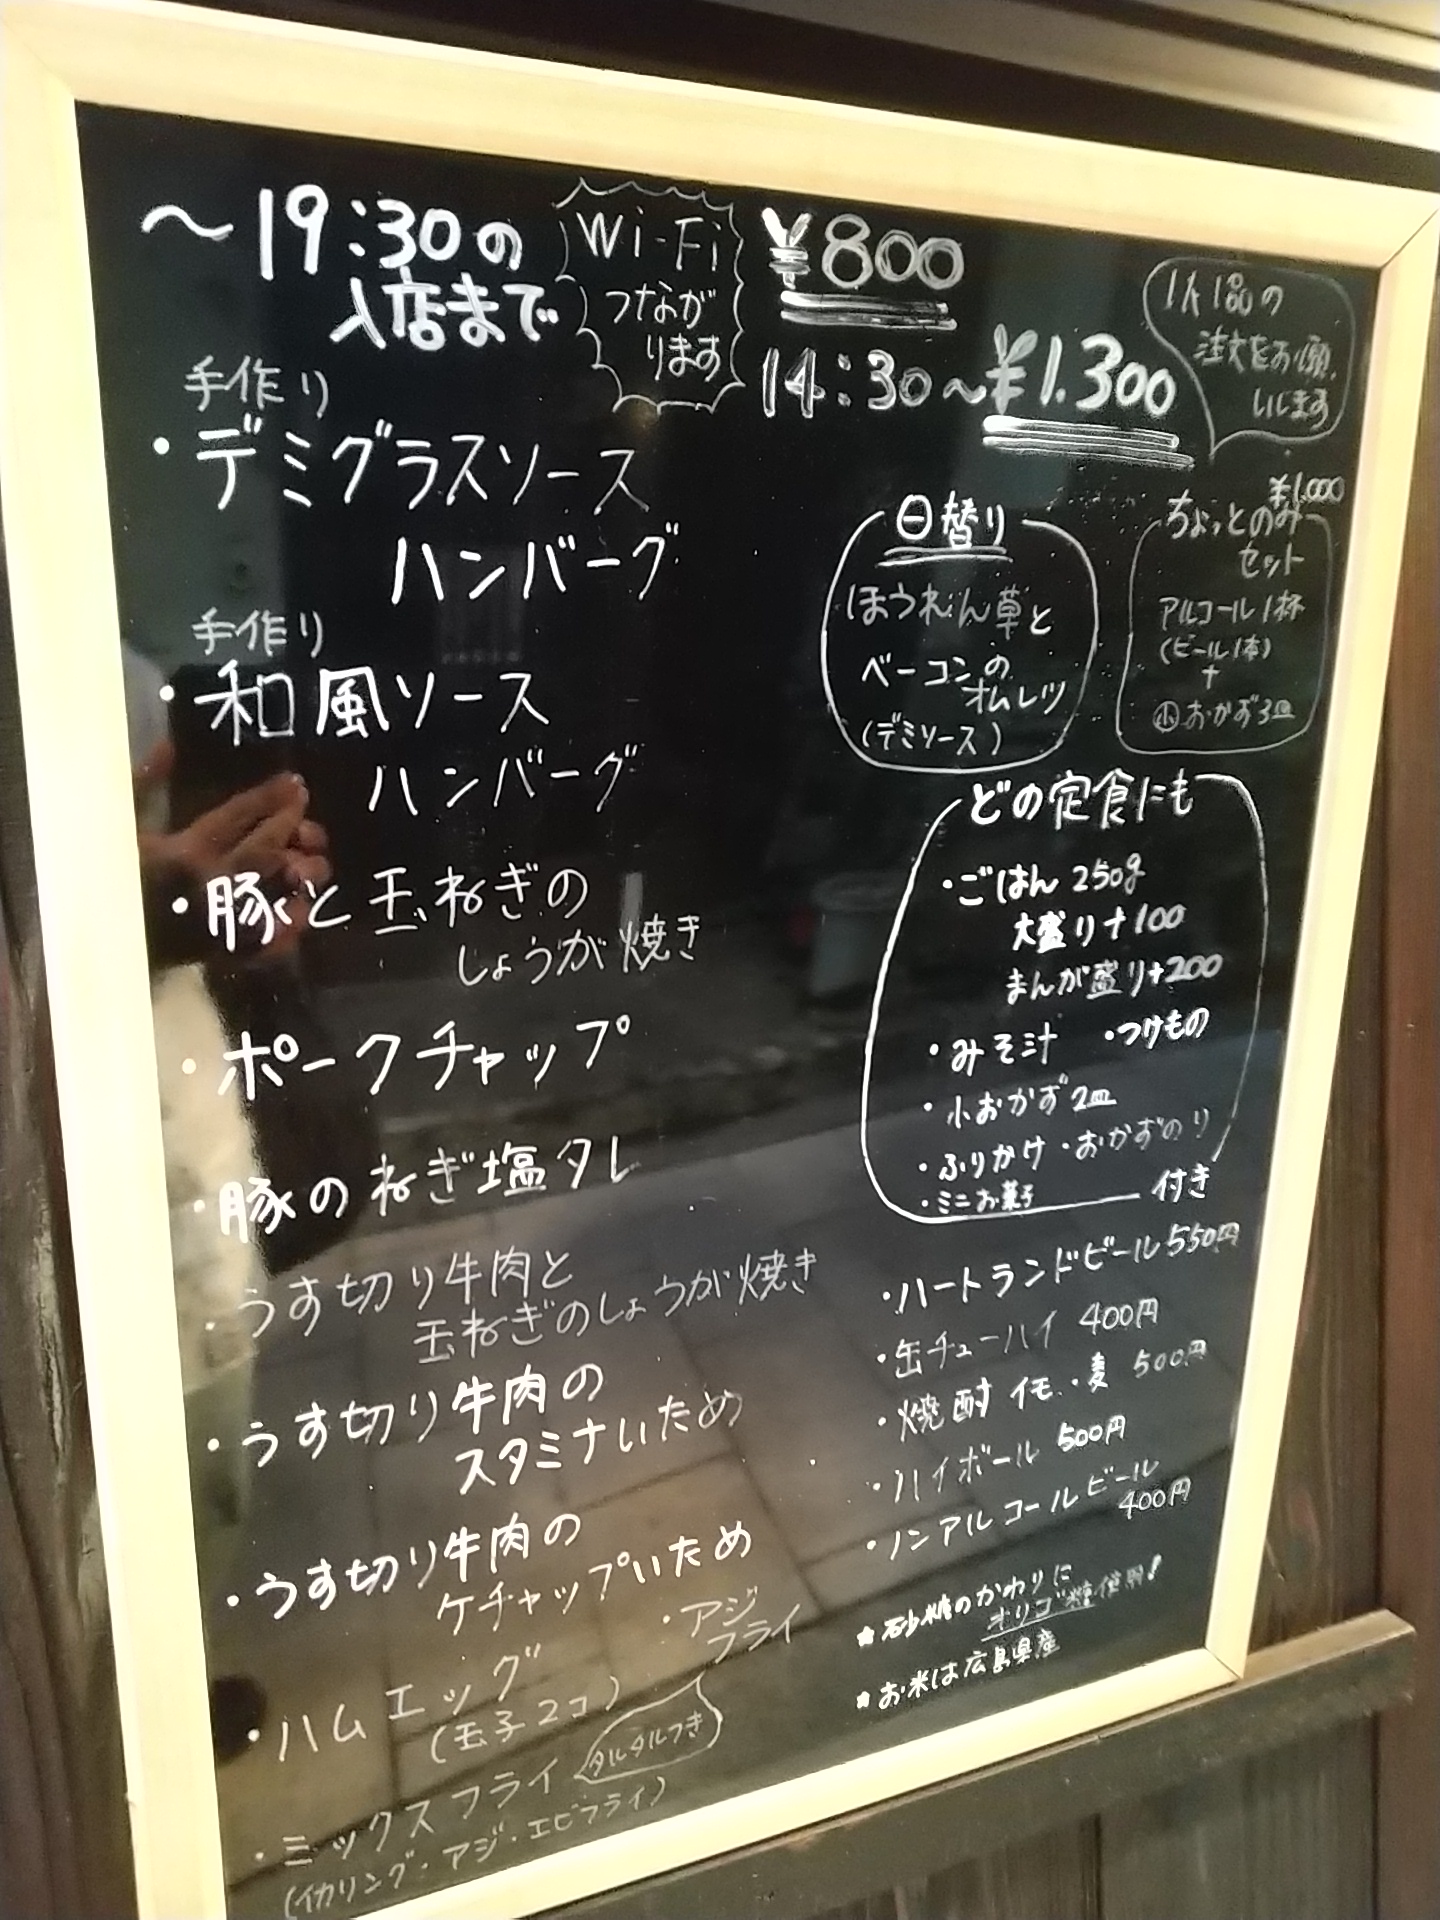 ～19:30の
入店まで
Wi-Fi
つなが
ります
¥800
14:30～¥1.300
1人1品の
注文をお願
いします
手作り
・デミグラスソース
ハンバーグ
手作り
・和風ソース
ハンバーグ
・豚と玉ねぎの
しょうが焼き
・ポークチャップ
・豚のねぎ塩タレ
・うす切り牛肉と
玉ねぎのしょうが焼き
・うす切り牛肉の
スタミナいため
・うす切り牛肉の
ケチャップいため
・ハムエッグ
(玉子2コ)
・アジ
フライ
・ミックスフライ
タルタルつき
(イカリング・アジ・エビフライ)
日替り
ほうれん草と
ベーコンの
オムレツ
(デミソース)
¥1.000
ちょっとのみ
セット
アルコール1杯
(ビール1本)
+
小おかず3皿
どの定食にも
・ごはん 250g
大盛り+100
まんが盛り+200
・みそ汁 ・つけもの
・小おかず2皿
・ふりかけ・おかずのり
・ミニお菓子 ― 付き
・ハートランドビール550円
・缶チューハイ 400円
・焼酎 イモ・麦 500円
・ハイボール 500円
・ノンアルコールビール
400円
★砂糖のかわりに
オリゴ糖使用!
★お米は広島県産